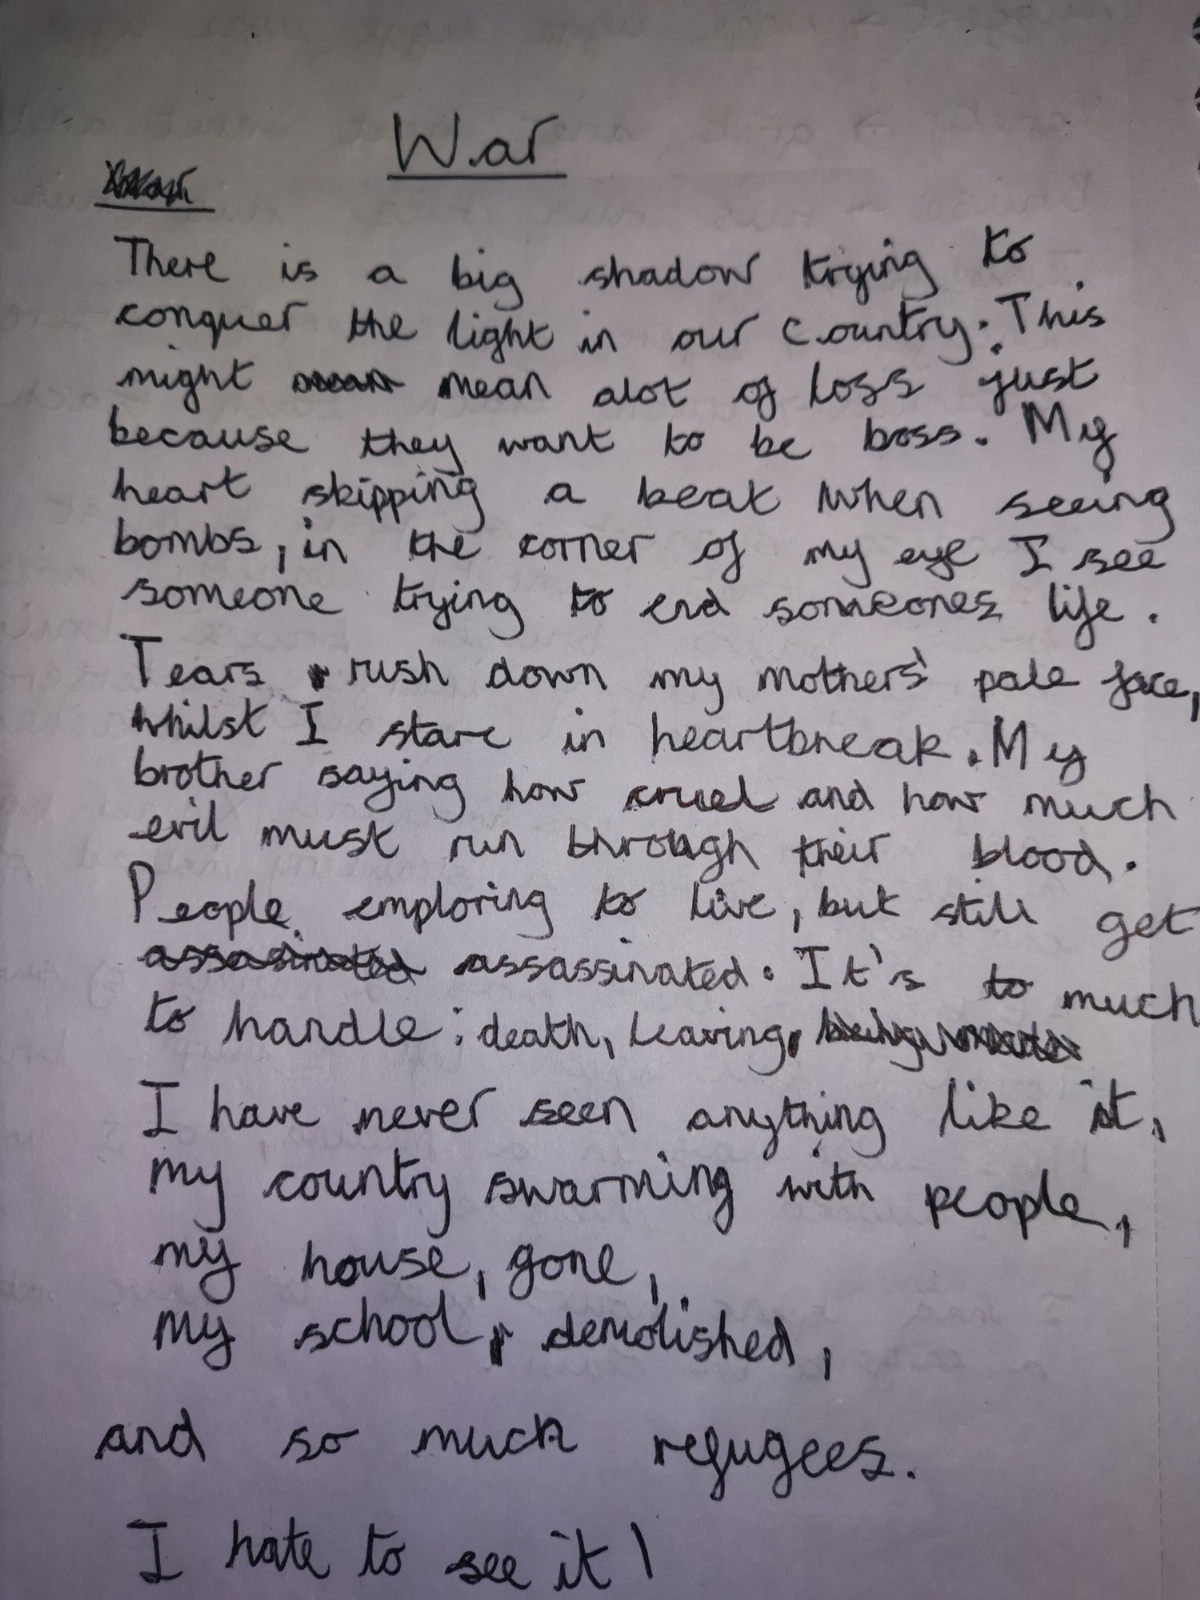 War
There is a big shadow trying to
conquer the light in our country. This
might mean alot of loss just
because they want to be boss. My
heart skipping a beat when seeing
bombs, in the corner of my eye I see
someone trying to end someones life.
Tears rush down my mothers' pale face,
whilst I stare in heartbreak. My
brother saying how cruel and how much
evil must run through their blood.
People emploring to live, but still get
assassinated. It's to much
to handle: death, leaving,
I have never seen anything like it,
my country swarming with people,
my house, gone,
my school, demolished,
and so much refugees.
I hate to see it!